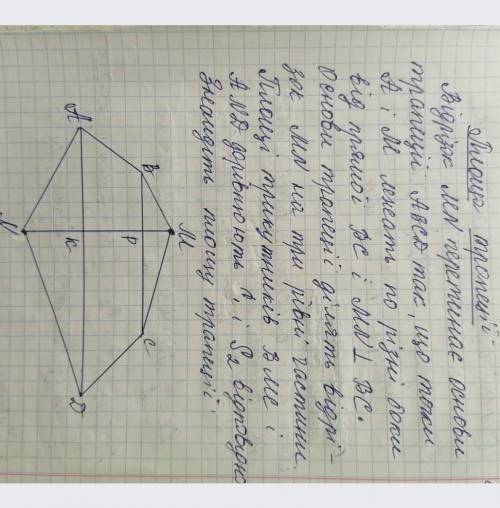 Площа трапеції.
Відрізок MN перетинає основи
трапеції ABCD так, що точки
A і M лежать по різні боки
від прямої BC і MN ⊥ BC.
Основи трапеції ділять відрі-
зок MN на три рівні частини.
Площі трикутників BMC і
AND дорівнюють S₁ і S₂ відповідно
Знайдіть площу трапеції.
A
B
M
P
K
N
C
D